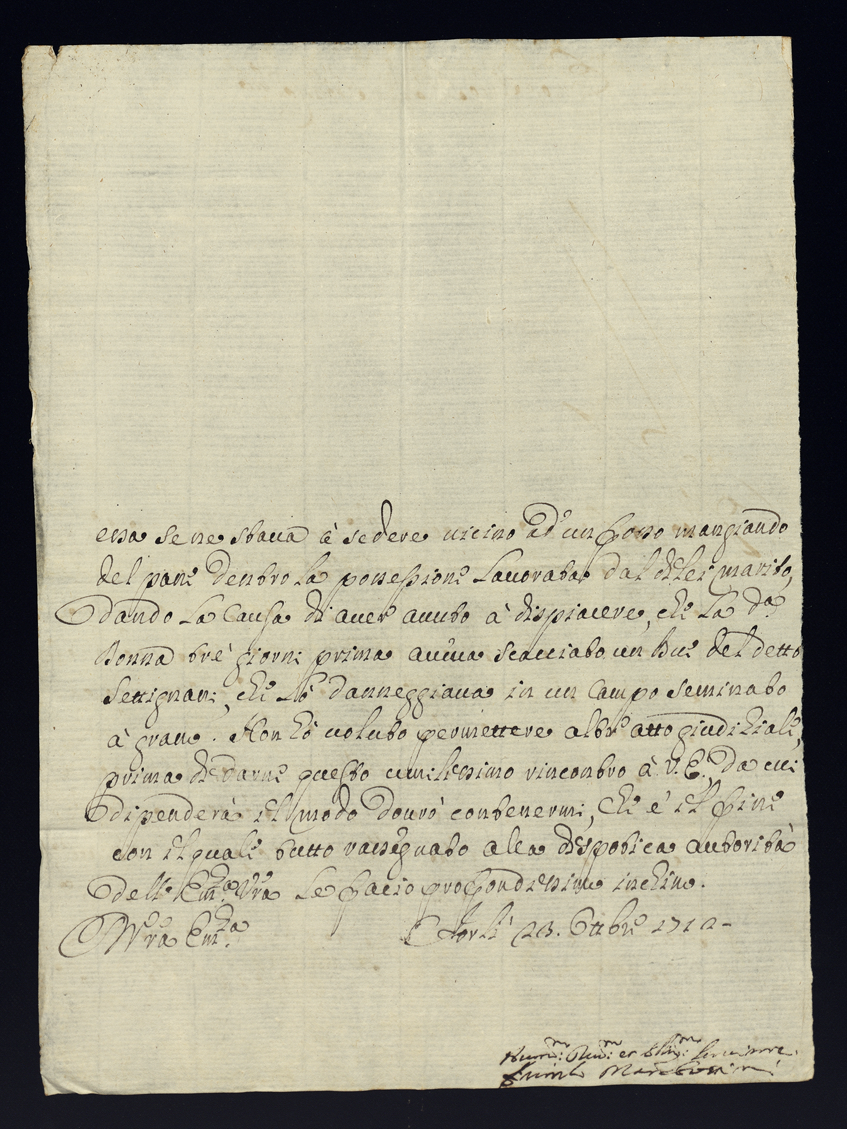 essa se ne staua à sedere uicino ad' un fosso mangiando
del pane dentro la possessione Lauorata dal di lei marito,
dando la causa di auer auuto à dispiacere, che la d.ª
Donna tre giorni prima aueua scacciato un Bue del detto
Settignani, che lo danneggiaua in un Campo seminato
à grano. Non hò uoluto permettere altri atti giudiziali,
prima di darne questo umilissimo rincontro à V. E., da cui
dipenderà il modo dourò contenermi, che è il fine
con il quale tutto rassegnato alla dispotica autorità
dell' Em.ª Vra le facio profondissimo inchino.
Di Vra Em.za Forlì 23. Ottbre 1712
Humil.mo Deu.mo et Oblig.mo Seruitore